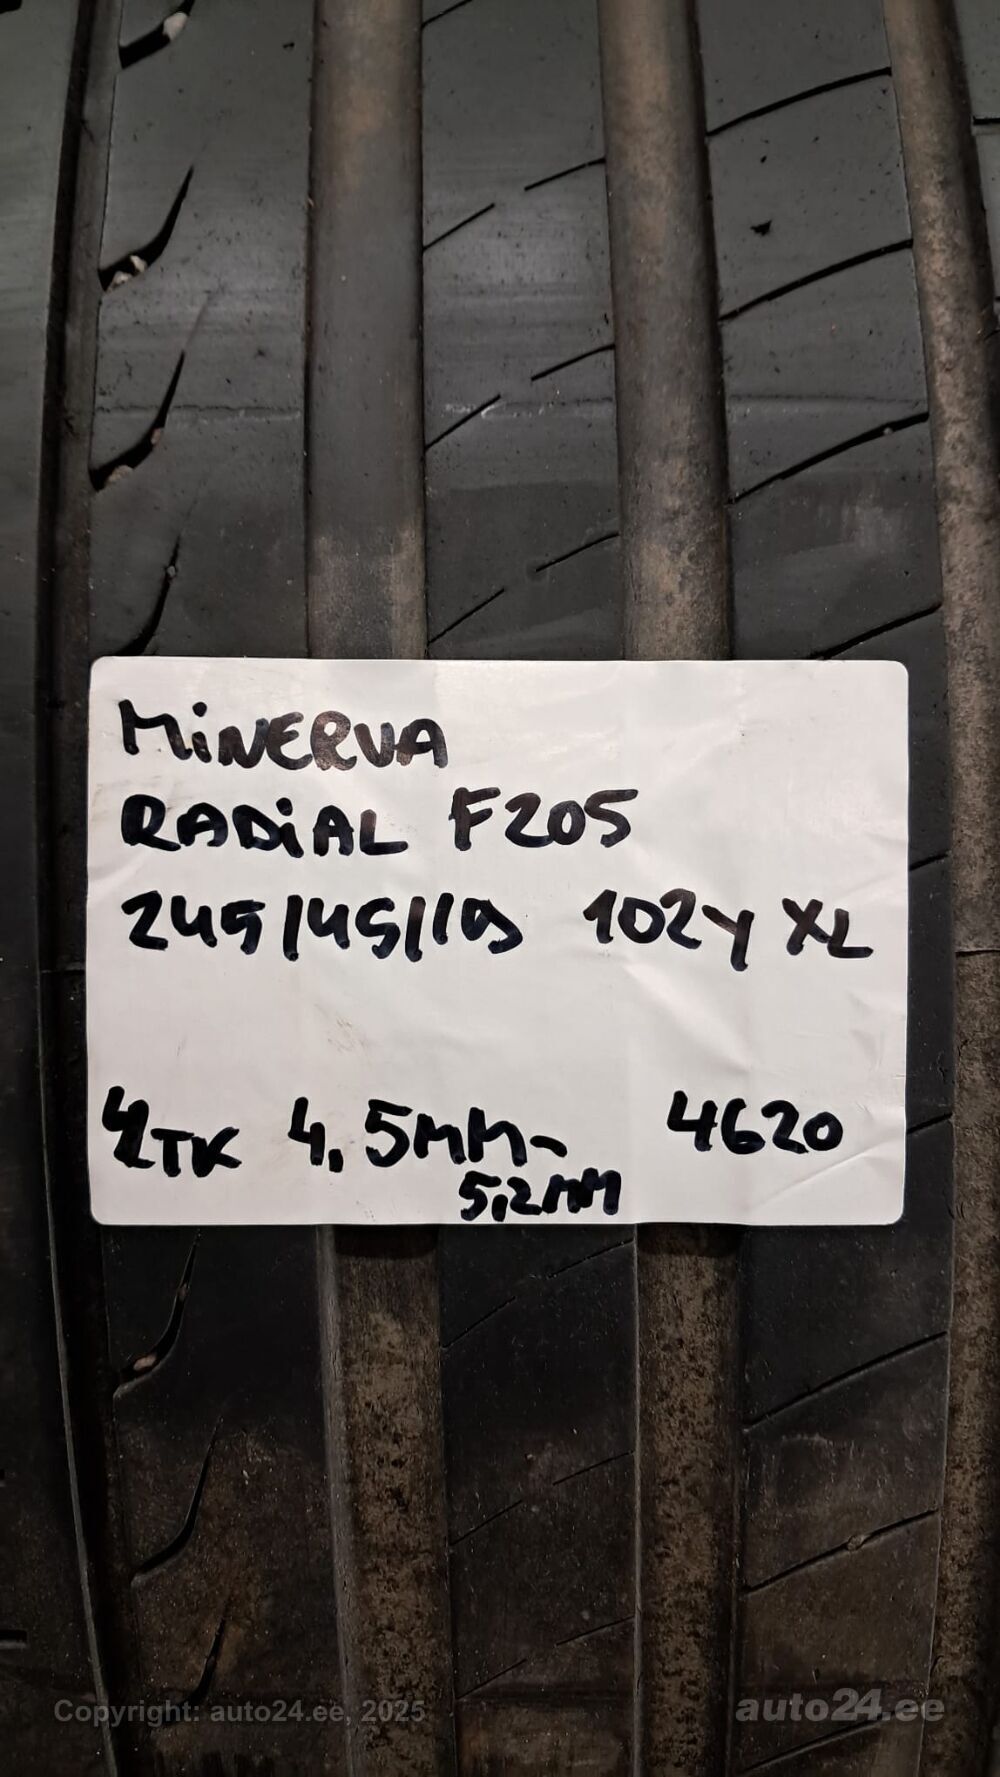 MiNERVA
RADiAL F205
245/45/19 102Y XL
4TK 4,5MM-
5,2MM
4620
Copyright: auto24.ee, 2025
auto24.ee